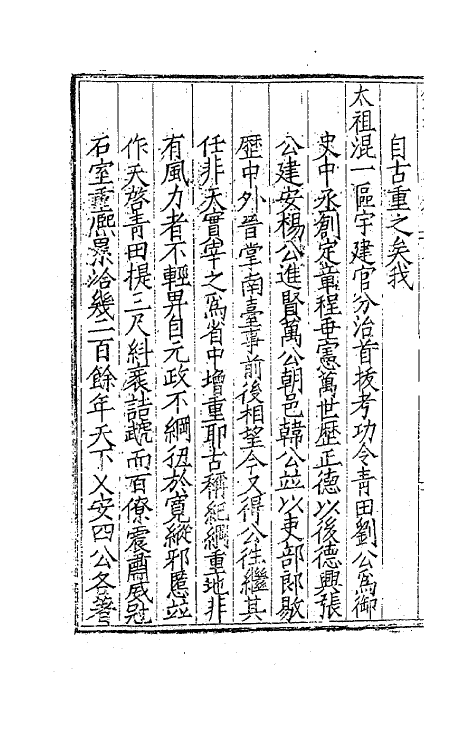 自古重之矣我
太祖混一區宇建官分治首拔考功令青田劉公爲御
史中丞創定章程垂憲萬世歷正德以後德興張
公建安楊公進賢萬公朝邑韓公竝以吏部郎敭
歷中外晉掌南臺事前後相望今又得公往繼其
任非天實宰之爲省中增重耶古稱紀綱重地非
有風力者不輕畀自元政不綱狃於寬縱邪慝竝
作天啓青田提三尺糾褒詰虣而百僚震讋威冠
石室重熈累洽幾二百餘年天下乂安四公各著